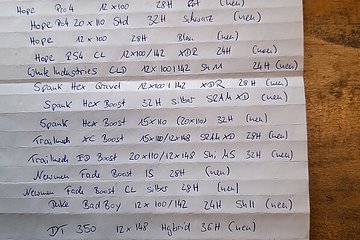 Hope Pro4 12x100 28H Rot (neu)
Hope Pro4 20x110 Std 32H Schwarz (neu)
Hope 12x100 28H Blau (neu)
Hope RS4 CL 12x100/142 XDR 24H (neu)
White Industries CLD 12x100/142 Sh11 24H (neu)
Spank Hex Gravel 12x100/142 XDR 28H (neu)
Spank Hex Boost 32H Silber SRAM XD (neu)
Spank Hex Boost 15x110 (20x110) 32H (neu)
Trailmech XC Boost 15x110/12x148 SRAM XD 28H (neu)
Trailmech ED Boost 20x110/12x148 Shi MS 32H (neu)
Newmen Fade Boost IS 28H (neu)
Newmen Fade Boost CL Silber 28H (neu)
Bad Boy 12x100/142 24H Sh11 (neu)
DT 350 12x148 Hybrid 36H (neu)